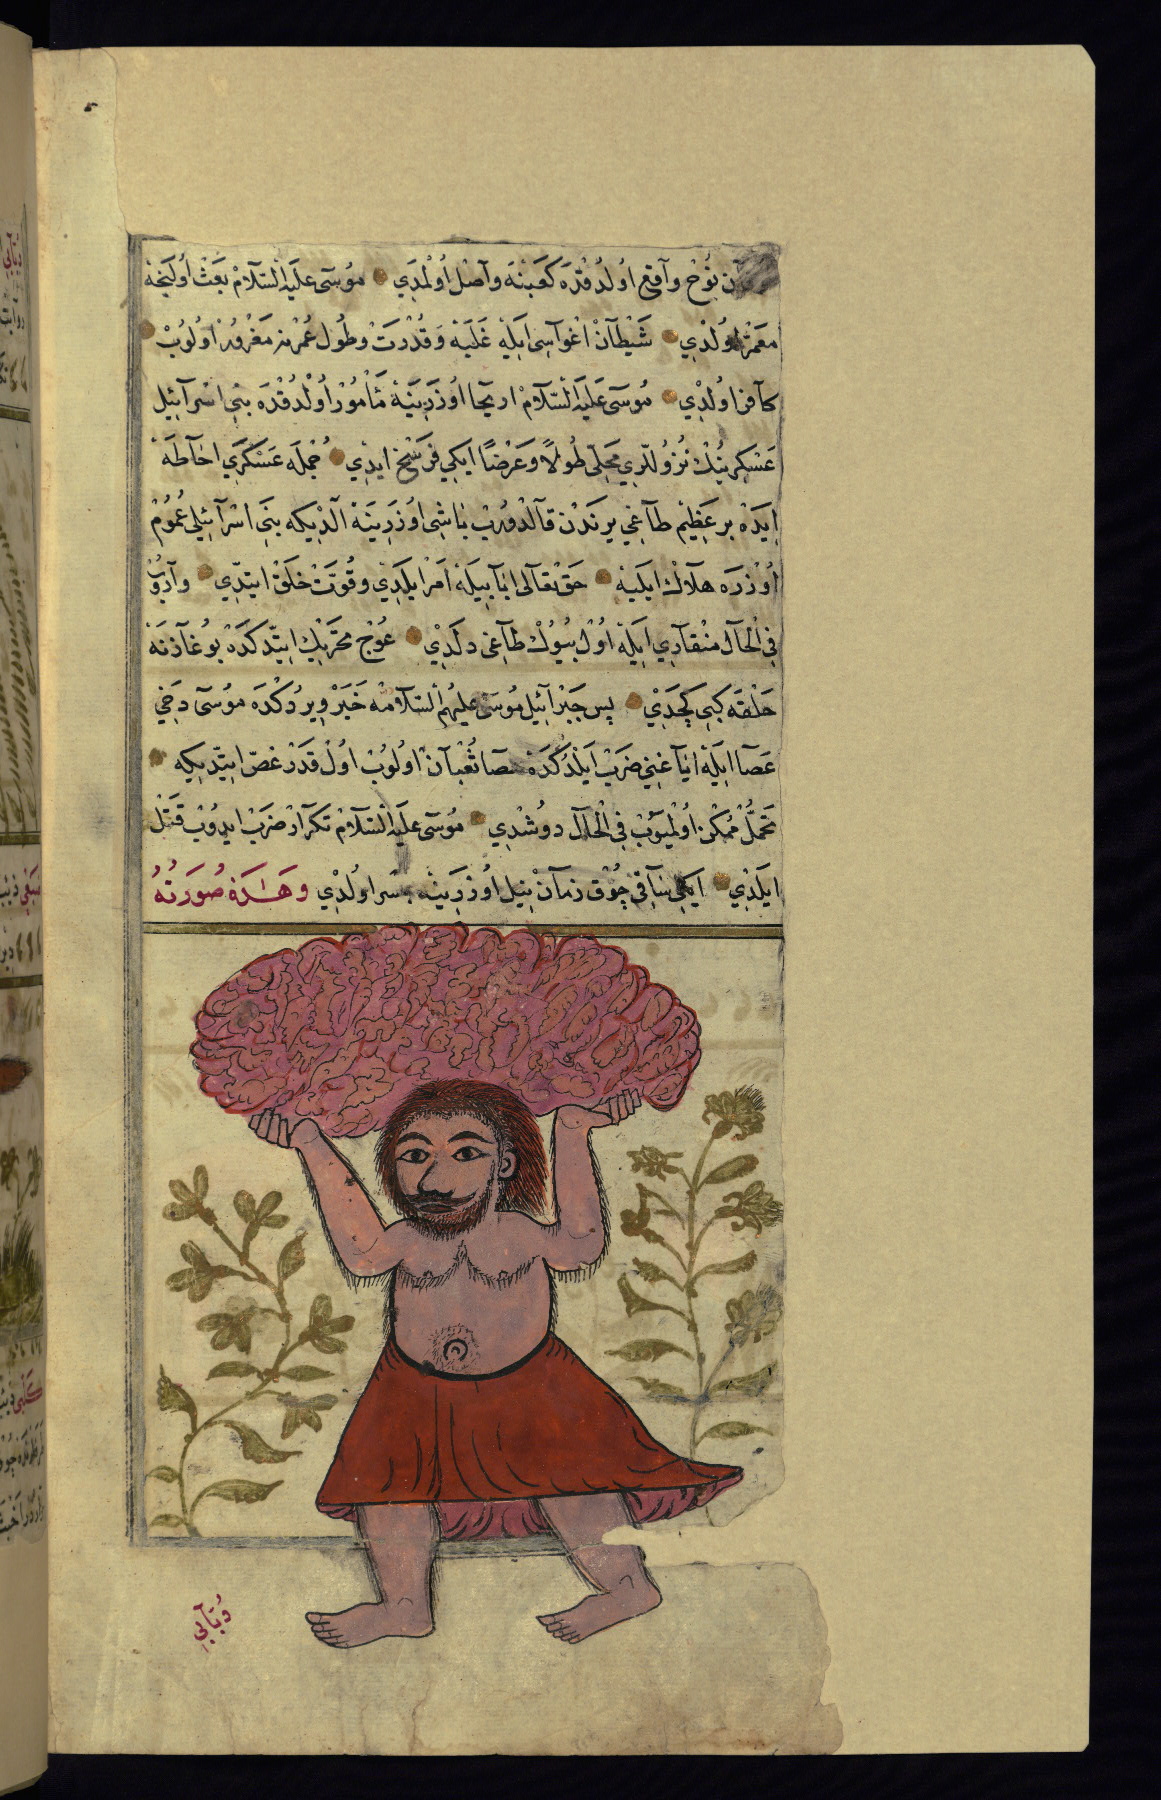 نُوحْ وآقِع اُولدُقْدَه كَعْبِنَه وآصْل اُولْمَدِي مُوسَى عَلَيْهِ السَّلَامْ بَعَثْ اُولَنْجَهْ
مُعَمَّرْ اُولْدِي شَيْطَانْ اغْوَاسِي ايلَهْ غَلَبَهْ وَقُدْرَتْ وطُولِ عُمْرِنَه مَغْرُورْ اولُوبْ
كافر اُولْدِي مُوسَى عَلَيْهِ السَّلَامْ اريحا اُوزَرِينَهْ مَأْمُورْ اُولْدُقْدَه بَنِي اسْرآئِيل
عَسْكَرِينُكْ نُزُوللَرِي مَحَلِّي طُولاً وَعَرْضًا ايكِي فَرْسَخْ ايدِي جُمْلَه عَسْكَرِي احَاطَهْ
ايدَهْ بِر عَظِيمْ طاغِي يرندَنْ قالْدُورُبْ باشِي اُوزَرِينَهْ آلْدِيكه بَنِي اسْرآئِيلِي عُمُومْ
اُوزرَه هلآك ايلَيَهْ حَقْ تَعَالَى انا بيلَهْ امْر ايلَدِي وقُوَّتْ خَلْقْ ايتْدِي وآرُوبْ
فِي الْحَالْ مِنْقَارِي ايلَهْ اُولْ بُيُوكْ طاغِي دلْدِي عُوجْ تحريك ايتْدكْدَهْ بُوغازنَهْ
حَلْقَه كِبِي كَچْدِي پس جِبْرآئِيل مُوسَى عَلَيْهِمُ السَّلَامَهْ خَبَرْ ويرْدُكْدَه مُوسَى دَخِي
عَصَا ايلَهْ اياغِنِي ضَرْبْ ايلَدُكْدَهْ عصا ثُعْبَانْ اولُوبْ اُولْ قَدَرْ عَضّ ايتْدِيكه
تَحَمُّلْ مُمْكِن اُولْميُوبْ فِي الْحَالْ دوشْدِي مُوسَى عَلَيْهِ السَّلَامْ تَكْرَارْ ضَرْبْ ايدُوبْ قَتْلْ
ايلَدِي ايكِي سَاقِي چُوقْ زمانْ نِيل اُوزَرِينَه جسر اولْدِي وهَذِهِ صُورَتُهُ
دُبّآبِي